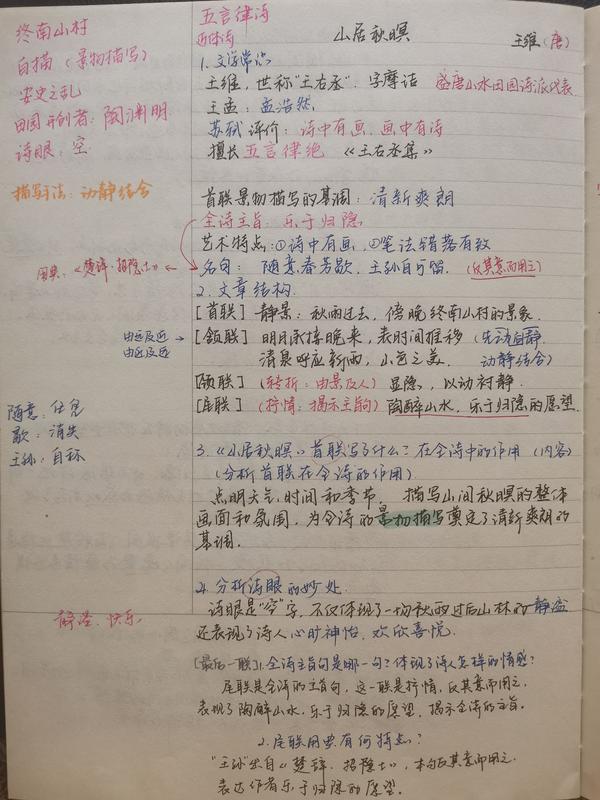 五言律诗
近体诗
山居秋暝
王维（唐）
终南山村
白描（景物描写）
安史之乱
田园开创者：陶渊明
诗眼：空
描写手法：动静结合
用典：《楚辞·招隐士》
由远及近
由近及远
随意：任凭
歇：消失
王孙：自称
静谧、快乐
1.文学常识
王维，世称"王右丞"，字摩诘 盛唐山水田园诗派代表
王孟：孟浩然
苏轼评价：诗中有画，画中有诗
擅长五言律绝 《王右丞集》
首联景物描写的基调：清新爽朗
全诗主旨：乐于归隐
艺术特点：①诗中有画，②笔法错落有致
名句：随意春芳歇，王孙自可留。（反其意而用之）
2.文章结构
[首联] 静景：秋雨过去，傍晚终南山村的景象
[颔联] 明月承接晚来，表时间推移（先动后静
清泉呼应新雨，山色之美。 动静结合）
[颈联]（转折：由景及人）显隐，以动衬静
[尾联]（抒情：揭示主旨句）陶醉山水，乐于归隐的愿望
3.《山居秋暝》首联写了什么？在全诗中的作用（内容）
（分析首联在全诗的作用）
点明天气，时间和季节，描写山间秋暝的整体
画面和氛围，为全诗的景物描写奠定了清新爽朗的
基调。
4.分析诗眼的妙处
诗眼是"空"字，不仅体现了一场秋雨过后山林的静谧
还表现了诗人心旷神怡，欢欣喜悦。
[最后一联]1.全诗主旨句是哪一句？体现了诗人怎样的情感？
尾联是全诗的主旨句，这一联是抒情，反其意而用之，
表现了陶醉山水，乐于归隐的愿望，揭示全诗的主旨。
2.尾联用典有何特点？
"王孙"出自《楚辞·招隐士》，本句反其意而用之
表达作者乐于归隐的愿望。